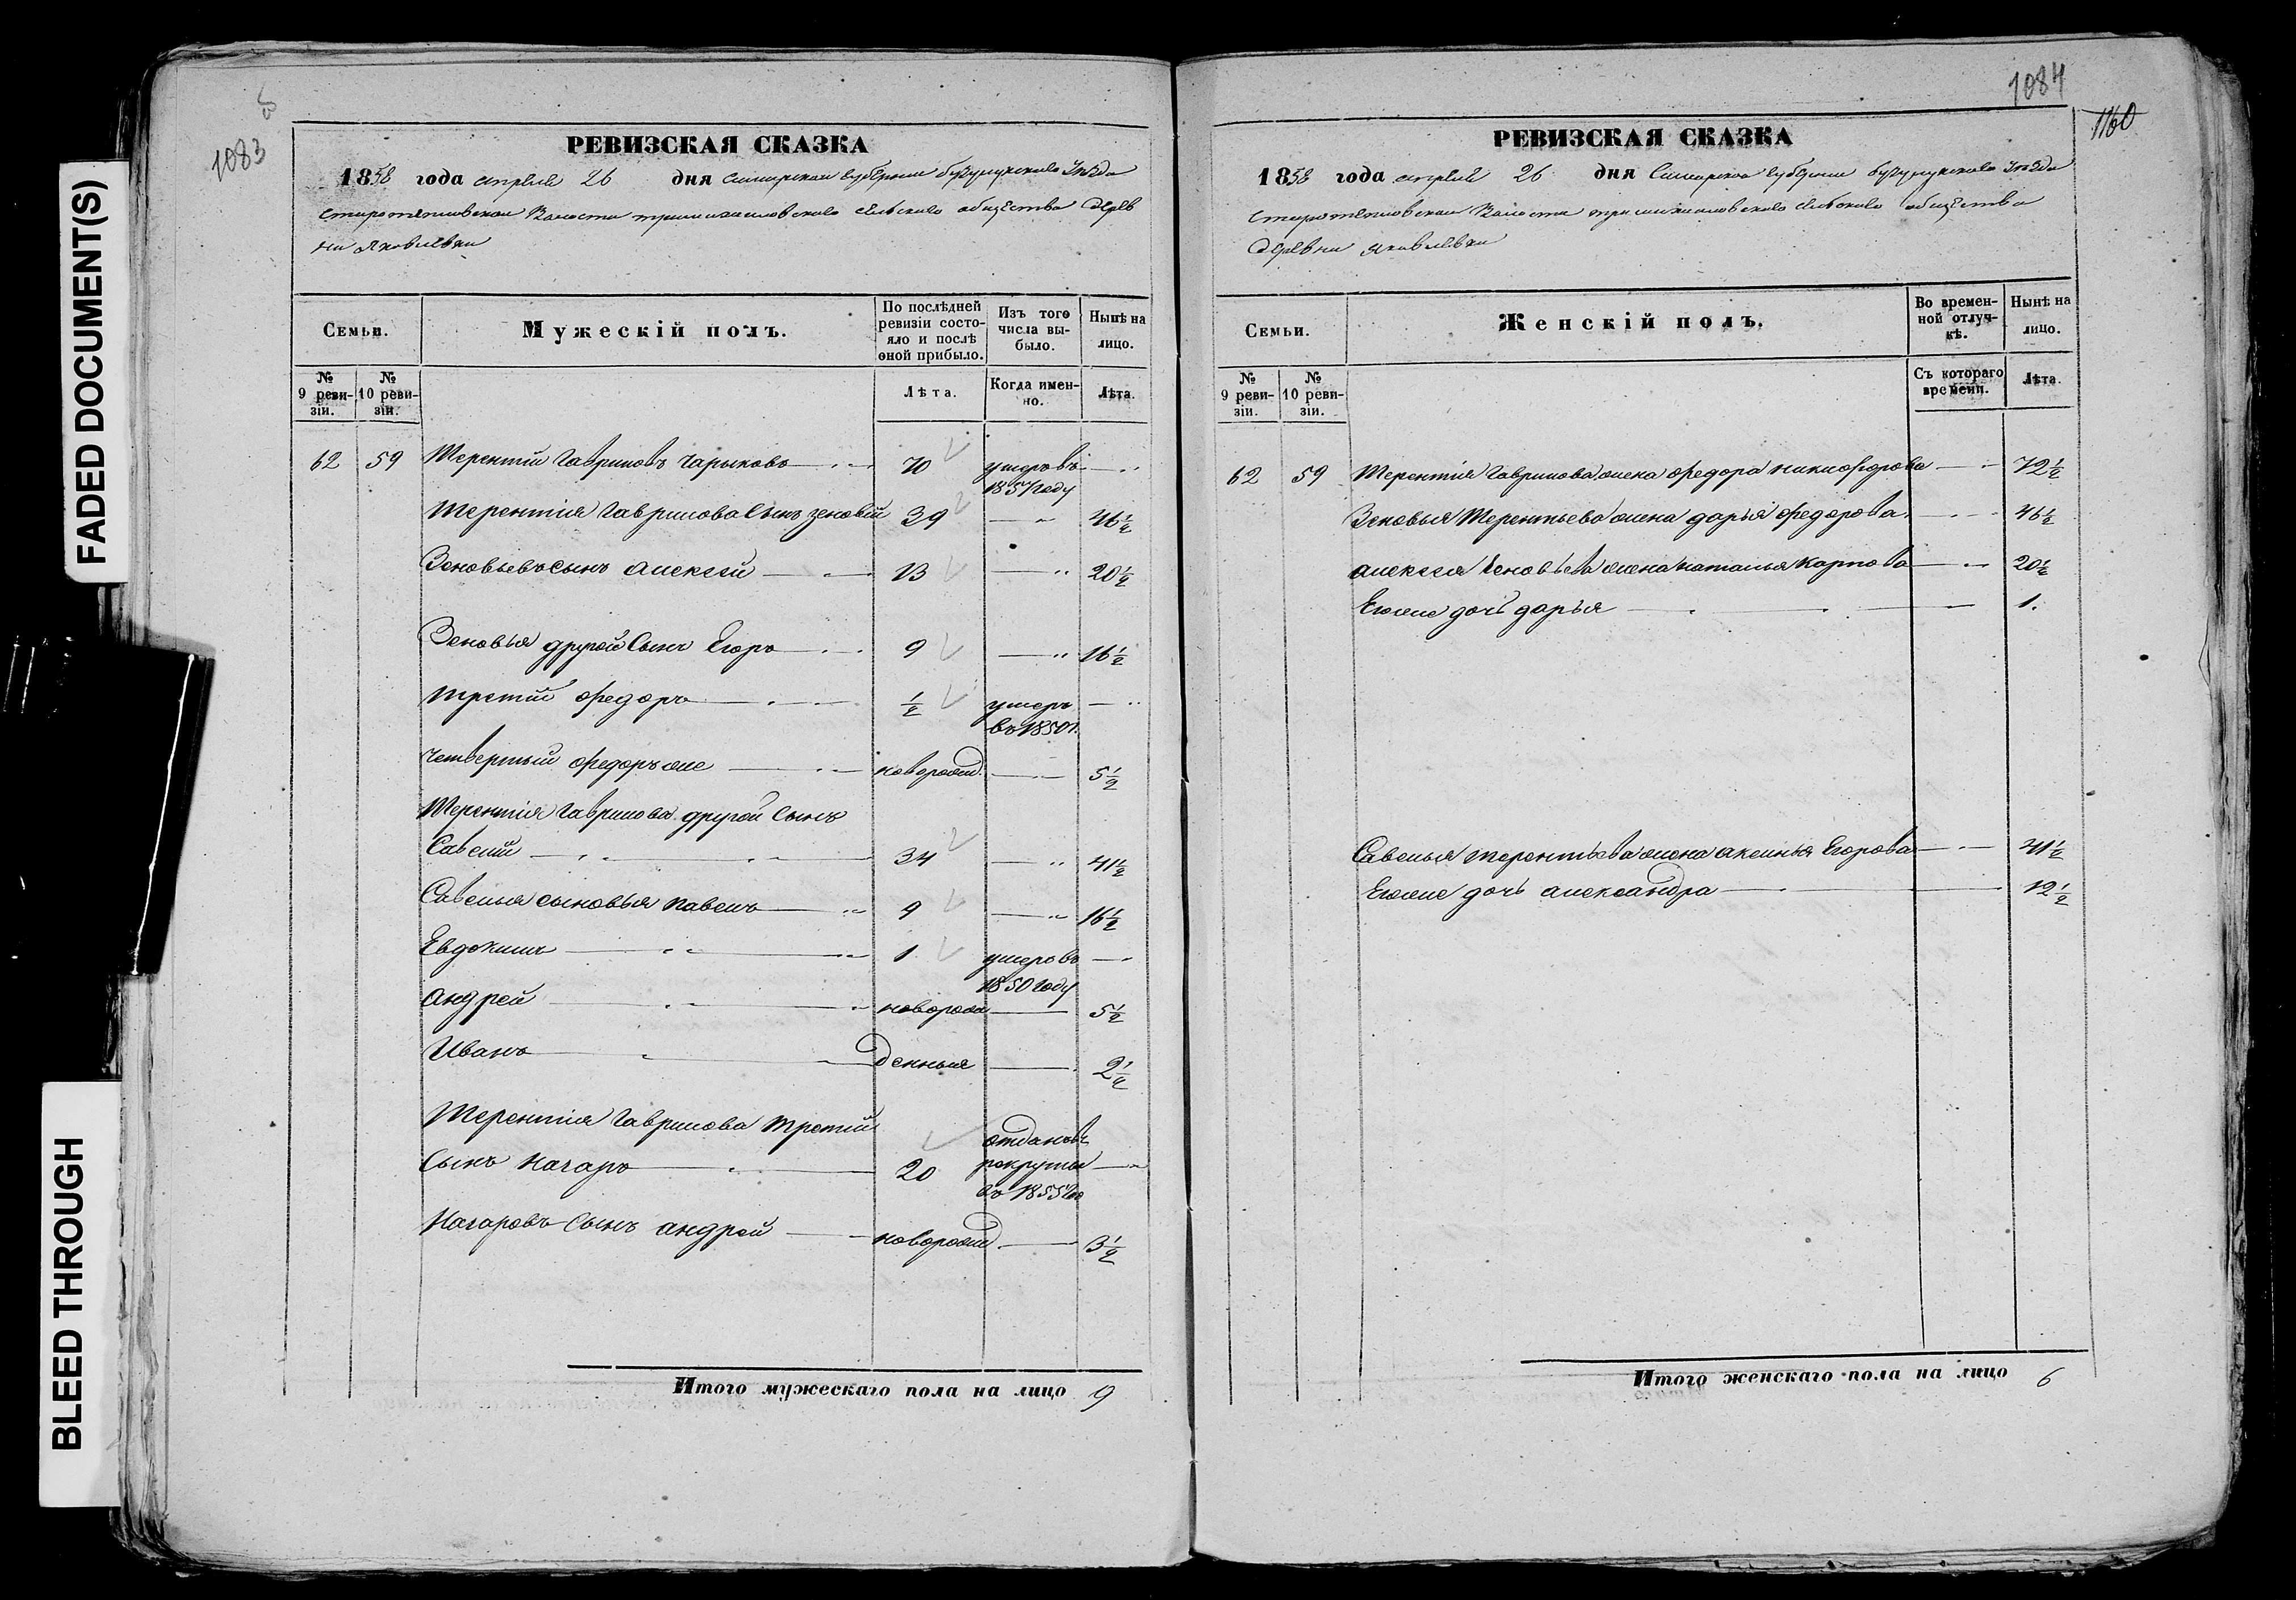 FADED DOCUMENT(S)
BLEED THROUGH
1083
РЕВИЗСКАЯ СКАЗКА
1858 года апреля 26 дня Самарской губернии бузулукскаго Уезда
Волости сельскаго общества Дерев
ни Яковлевки
Семьи.
Мужескій полъ.
По послѣдней ревизіи состояло и послѣ оной прибыло.
Изъ того числа выбыло.
Нынѣ на лицо.
№ 9 ревизіи.
№ 10 ревизіи.
Лѣта.
Когда именно.
Лѣта.
62 59 Терентій Гавриловъ Чарыковъ 70 умеръ въ
1857 году
Терентія Гаврилова Сынъ зеновій 39 46½
Зеновьевъ сынъ алексей 13 20½
Зеновья другой Сынъ Егоръ 9 16½
третій федоръ ½ умеръ
въ 1850 г.
четвертый федоръ же новорожд. 5½
Терентія Гаврилова другой Сынъ
Савелій 34 41½
Савелья сыновья павелъ 9 16½
Евдокимъ 1 умеръ въ
1850 году
андрей новорож 5½
Иванъ денныя 2½
Терентія Гаврилова третій отданъ въ
Сынъ Назаръ 20 рекруты
въ 1855 го
Назаровъ Сынъ андрей новорожд. 3½
Итого мужескаго пола на лицо 9
1084
1160
РЕВИЗСКАЯ СКАЗКА
1858 года апреля 26 дня Самарской губернии бузулукскаго Уезда
Волости сельскаго общества
Деревни яковлевки
Семьи.
Женскій полъ.
Во временной отлучкѣ.
Нынѣ на лицо.
№ 9 ревизіи.
№ 10 ревизіи.
Съ котораго времени.
Лѣта.
62 59 Терентія Гаврилова жена федора никифорова 72½
Зеновья Терентьева жена дарья федорова 46½
алексея Зеновьева жена наталья карпова 20½
Егоже дочь дарья 1.
Савелья терентьева жена аксинья Егорова 41½
Егоже дочь александра 12½
Итого женскаго пола на лицо 6